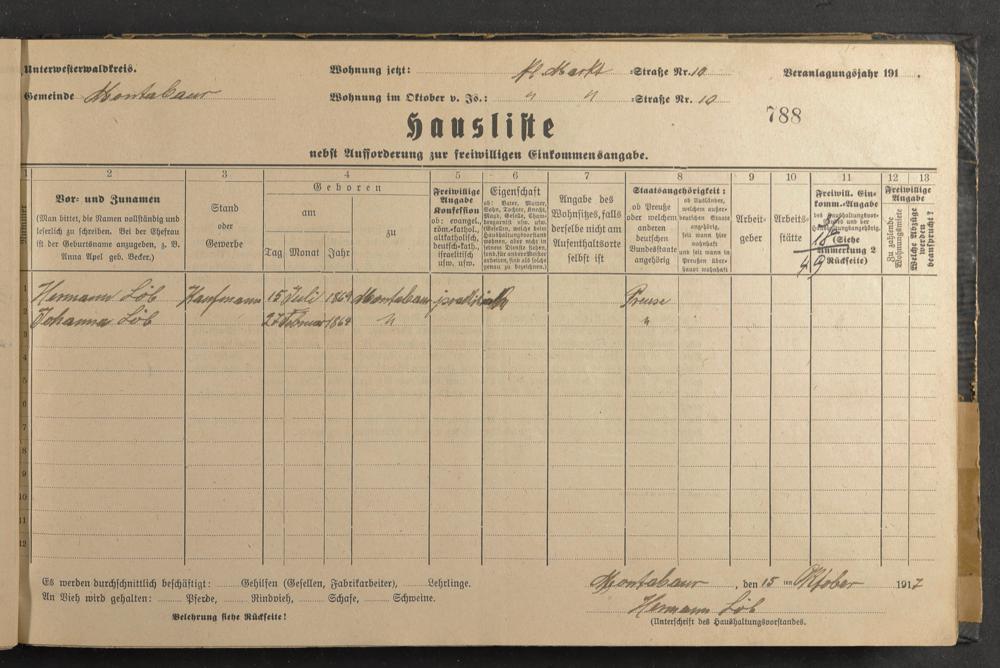 Unterwesterwaldkreis.
Wohnung jetzt: kl. Markt =Straße Nr. 10
Veranlagungsjahr 191 .
Gemeinde Montabaur
Wohnung im Oktober v. Js.: " " =Straße Nr. 10
788
Hausliste
nebst Aufforderung zur freiwilligen Einkommensangabe.
1 2 3 4 5 6 7 8 9 10 11 12 13
Vor- und Zunamen
(Man bittet, die Namen vollständig und
leserlich zu schreiben. Bei der Ehefrau
ist der Geburtsname anzugeben, z. B.
Anna Apel geb. Becker.)
Stand
oder
Gewerbe
Geboren
am
zu
Tag Monat Jahr
Freiwillige
Angabe
Konfession
ob: evangel.
röm.-kathol.,
altkatholisch,
deutsch-kath.,
israelitisch
usw. usw.
Eigenschaft
Angabe des
Wohnsitzes, falls
derselbe nicht am
Aufenthaltsorte
selbst ist
Staatsangehörigkeit:
ob Preuße
oder welchem
anderen
deutschen
Bundesstaate
angehörig
ob Ausländer,
welchem außer-
deutschen Staat
angehörig,
seit wann hier
wohnhaft
und seit wann in
Preußen über-
haupt wohnhaft
Arbeit-
geber
Arbeits-
stätte
Freiwill. Ein-
komm.-Angabe
(Siehe
Anmerkung 2
Rückseite)
Freiwillige
Angabe
Zu zahlende
Wohnungsmiete
Welche Abzüge
werden
beansprucht?
1 Hermann Löb Kaufmann 15 Juli 1869 Montabaur Preuse
2 Johanna Löb 27 Februar 1869 " "
3
4
5
6
7
8
9
10
11
12
Es werden durchschnittlich beschäftigt: Gehilfen (Gesellen, Fabrikarbeiter), Lehrlinge.
An Vieh wird gehalten: Pferde, Rindvieh, Schafe, Schweine.
Belehrung siehe Rückseite!
Montabaur, den 15 ten Oktober 1917
Hermann Löb
(Unterschrift des Haushaltungsvorstandes.